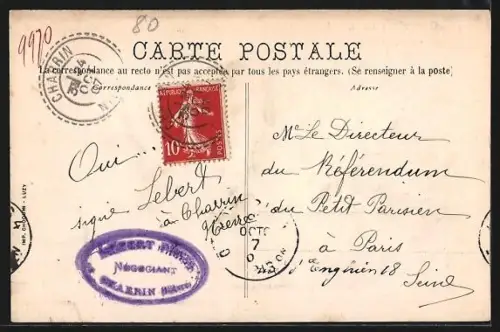 9970
80
CARTE POSTALE
La correspondance au recto n'est pas acceptée par tous les pays étrangers. (Se renseigner à la poste)
Correspondance
Adresse
CHARRIN
4
OCT
07
RÉPUBLIQUE FRANÇAISE
10
POSTES
Oui...
signé Lebert
à Charrin
Nièvre
Mr Le Directeur
du Référendum
du Petit Parisien
à Paris
r. d'Enghien 18 Seine
LEBERT
NÉGOCIANT
CHARRIN (Nièvre)
OCT
7
IMP. CHARRIN - LUZY